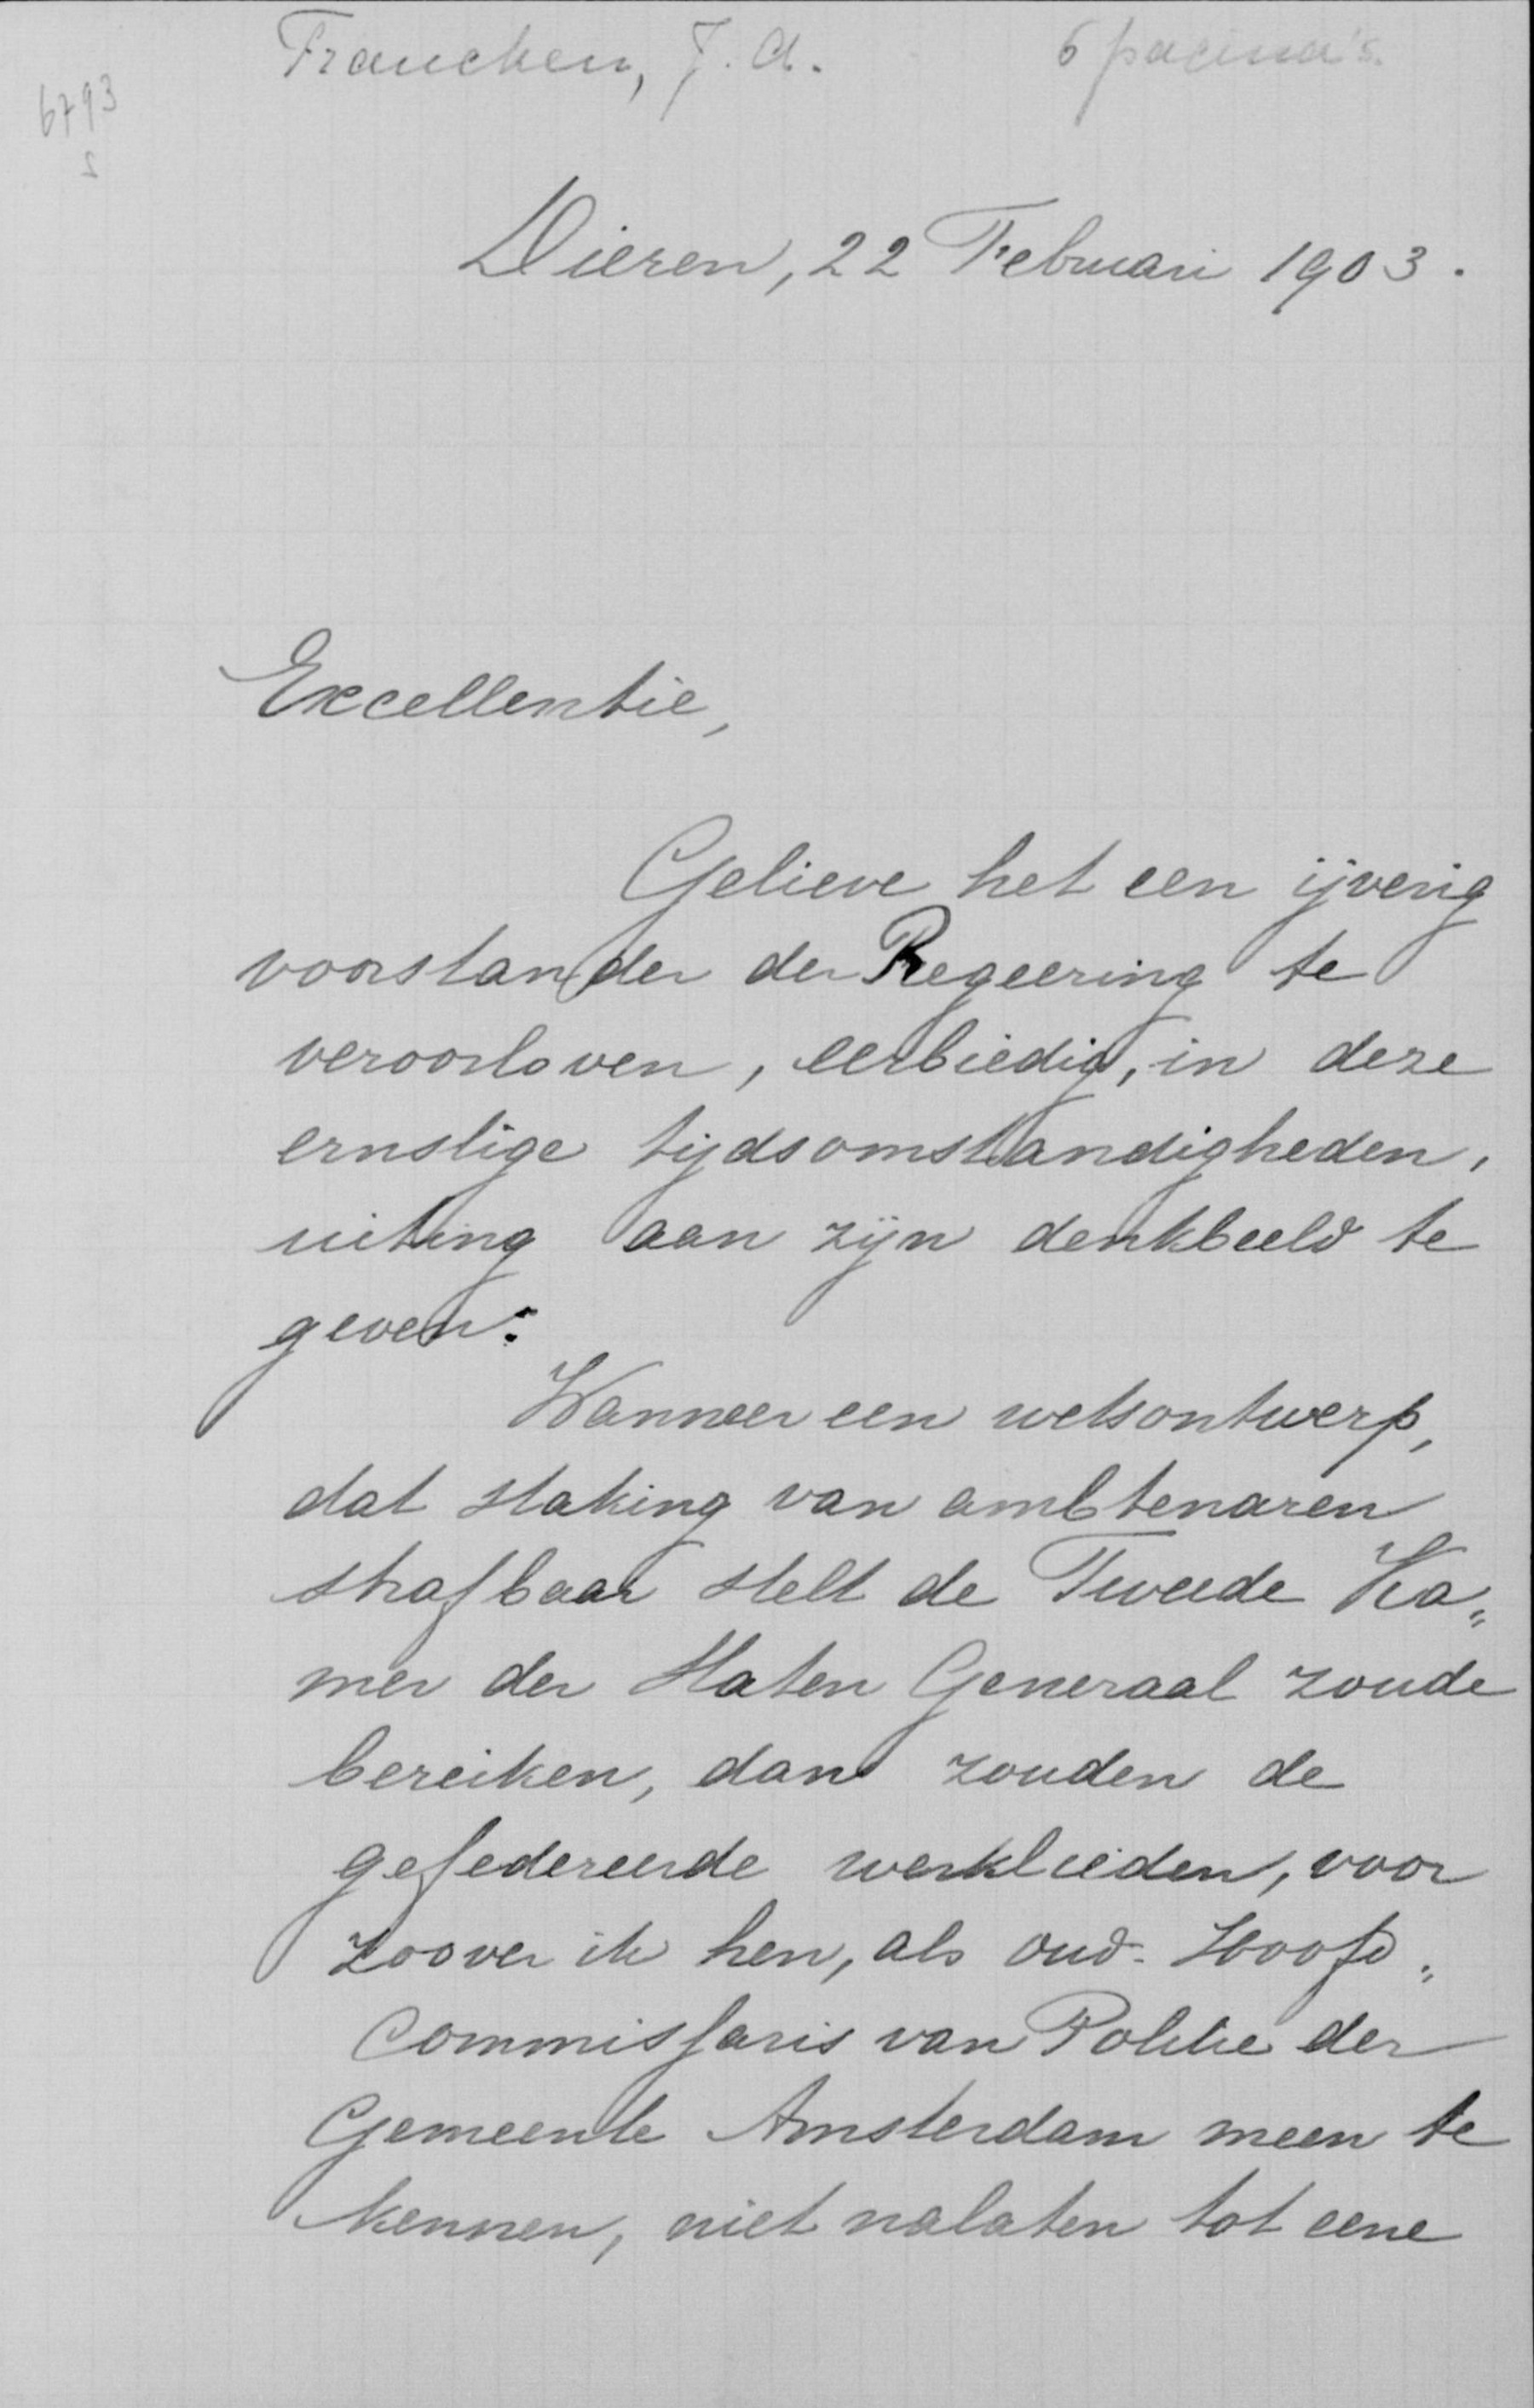 Francken, J. A. 6 pagina's.
6793
S
Dieren, 22 Februari 1903.
Excellentie,
Gelieve het een ijverig
voorstander der Regeering te
veroorloven, eerbiedig, in deze
ernstige tijdsomstandigheden,
uiting aan zijn denkbeeld te
geven:
Wanneer een wetsontwerp,
dat staking van ambtenaren
strafbaar stelt de Tweede Ka„
mer der Staten Generaal zoude
bereiken, dan zouden de
gefedereerde werklieden, voor
zoover ik hen, als oud-Hoofd„
commissaris van Politie der
Gemeente Amsterdam meen te
kennen, niet nalaten tot eene